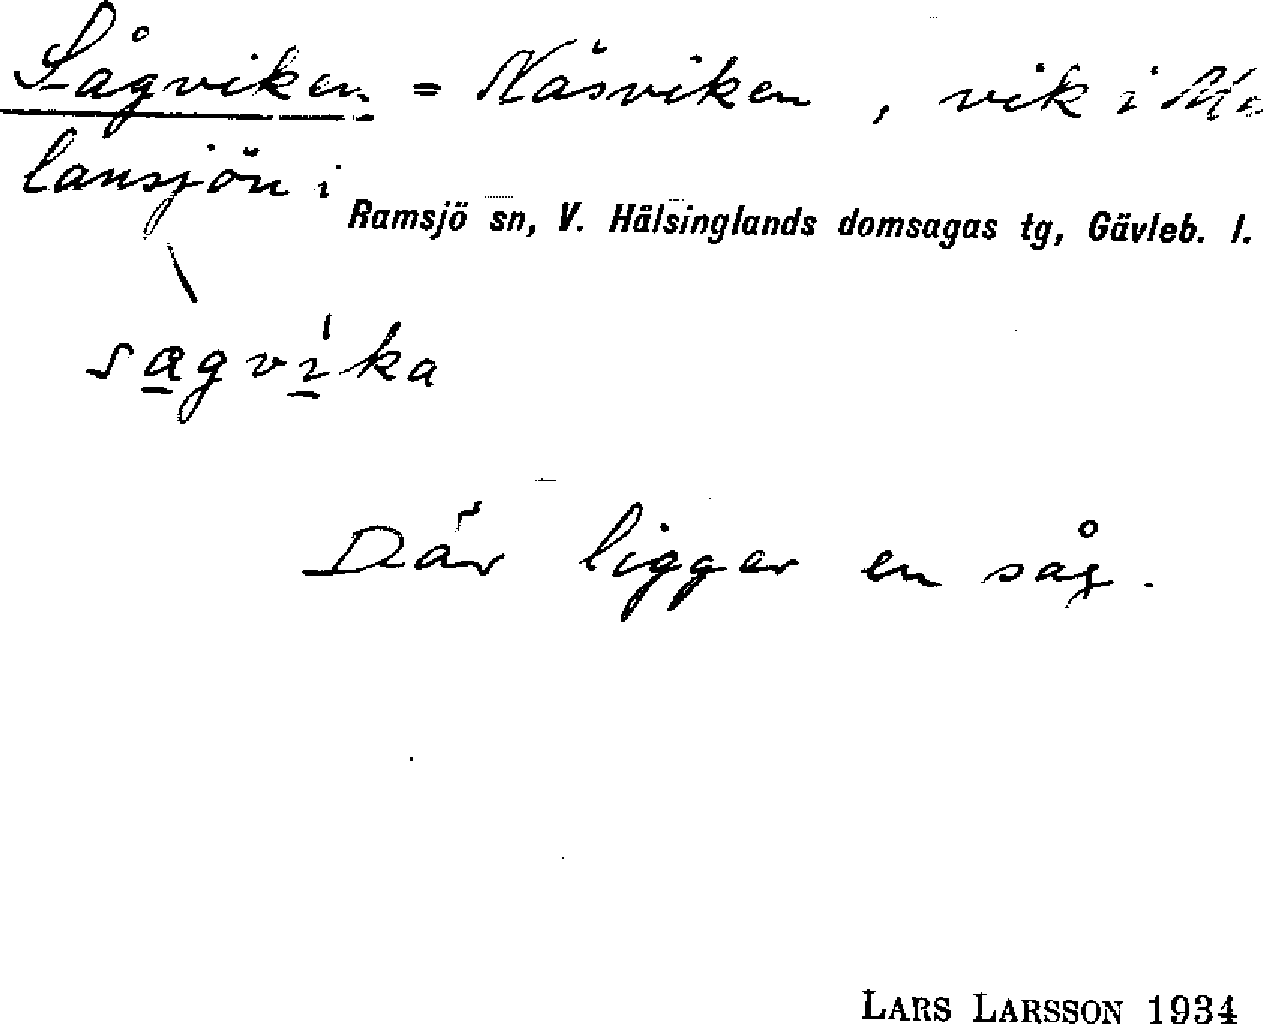 Sågviken = Näsviken, vik i Me
lansjön i
Ramsjö sn, V. Hälsinglands domsagas tg, Gävleb. l.
\
sagvika
Där ligger en såg.
LARS LARSSON 1934